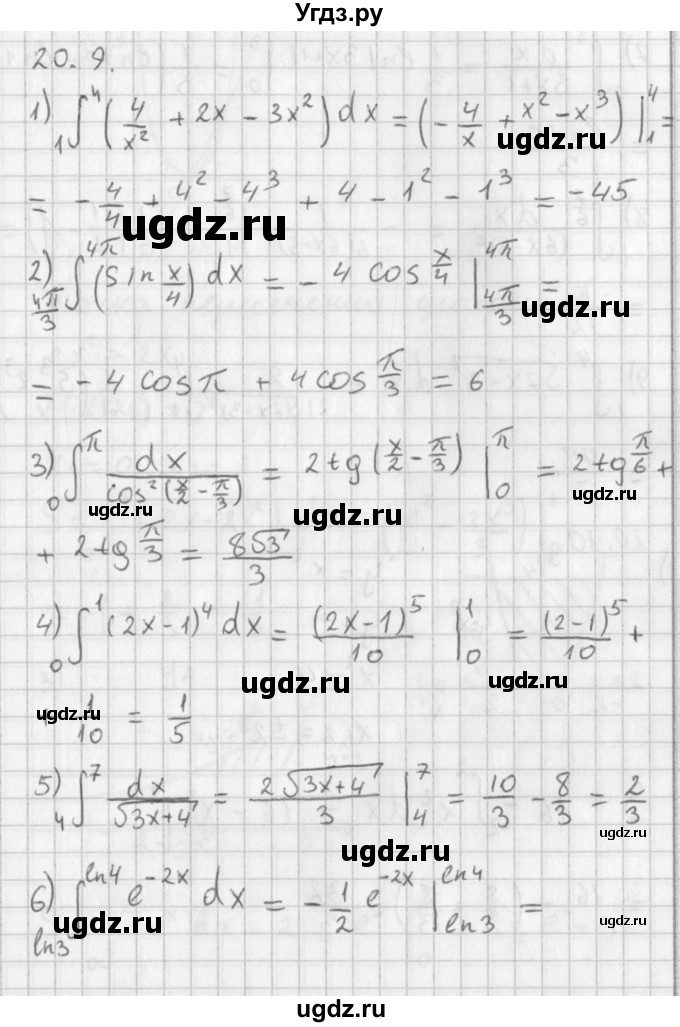 Угдз.ру
20.9.
1) ₁∫⁴ (4/x² + 2x − 3x²) dx = (−4/x + x² − x³) |₁⁴ =
= −4/4 + 4² − 4³ + 4 − 1² − 1³ = −45
ugdz.ru ugdz.ru
2) ∫_{4π/3}^{4π} (sin x/4) dx = −4 cos x/4 |_{4π/3}^{4π} =
ugdz.ru
= −4 cos π + 4 cos π/3 = 6
3) ₀∫^π dx/cos²(x/2 − π/3) = 2tg(x/2 − π/3) |₀^π = 2tg π/6 +
ugdz.ru ugdz.ru ugdz.ru
+ 2tg π/3 = 8√3/3
4) ₀∫¹ (2x−1)⁴ dx = (2x−1)⁵/10 |₀¹ = (2−1)⁵/10 +
ugdz.ru ugdz.ru
+ 1/10 = 1/5
ugdz.ru
5) ₄∫⁷ dx/√(3x+4) = 2√(3x+4)/3 |₄⁷ = 10/3 − 8/3 = 2/3
ugdz.ru ugdz.ru
6) ∫_{ln3}^{ln4} e^{−2x} dx = −1/2 e^{−2x} |_{ln3}^{ln4} =
ugdz.ru ugdz.ru
ugdz.ru